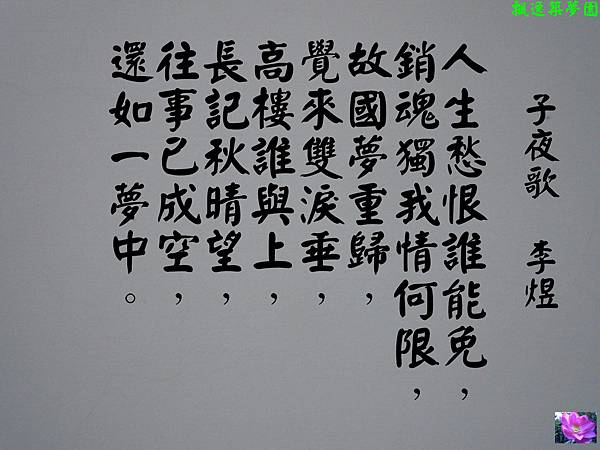 飄逸築夢園
子夜歌 李煜
人生愁恨誰能免，
銷魂獨我情何限，
故國夢重歸，
覺來雙淚垂，
高樓誰與上，
長記秋晴望，
往事已成空，
還如一夢中。